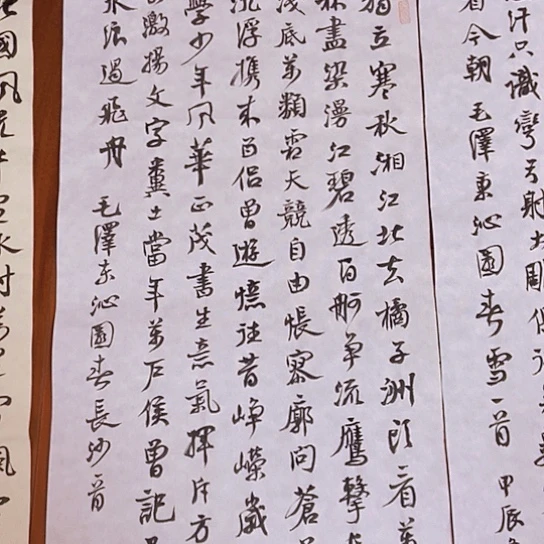 獨立寒秋湘江北去橘子洲頭看萬
林盡染漫江碧透百舸争流鷹擊
淺底萬類霜天競自由悵寥廓问蒼
沉浮携来百侣曾遊憶往昔崢嶸歲
學少年風華正茂書生意氣揮斥方
激揚文字糞土當年萬户侯曾記
水浪遏飛舟 毛澤东沁園春長沙一首
汗只識彎弓射大雕俱往
看今朝 毛澤東沁園春雪一首 甲辰
國風光千里冰封萬里雪飄